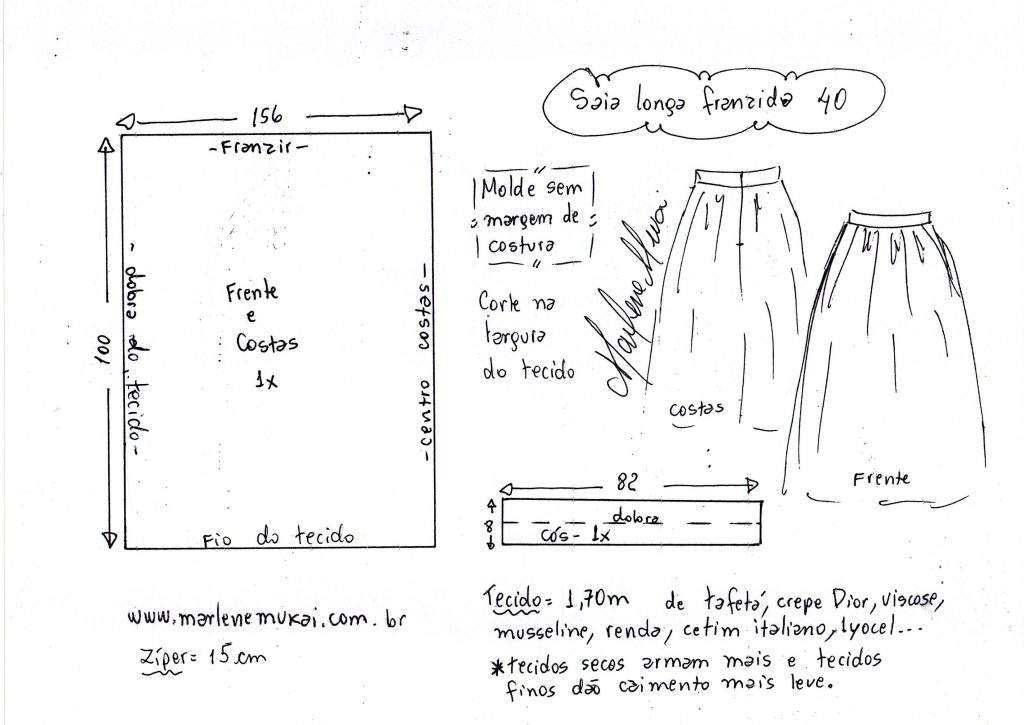 Saia longa franzida 40
156
-Franzir-
100
-dobra do tecido-
Frente
e
Costas
1x
-centro costas-
Fio do tecido
Molde sem
margem de
costura
Corte na
largura
do tecido
Marlene Mukai
costas
Frente
82
8
dobra
Cós- 1x
www.marlenemukai.com.br
Zíper= 15cm
Tecido= 1,70m de tafetá, crepe Dior, viscose,
musseline, renda, cetim italiano, lyocel...
*tecidos secos armam mais e tecidos
finos dão caimento mais leve.